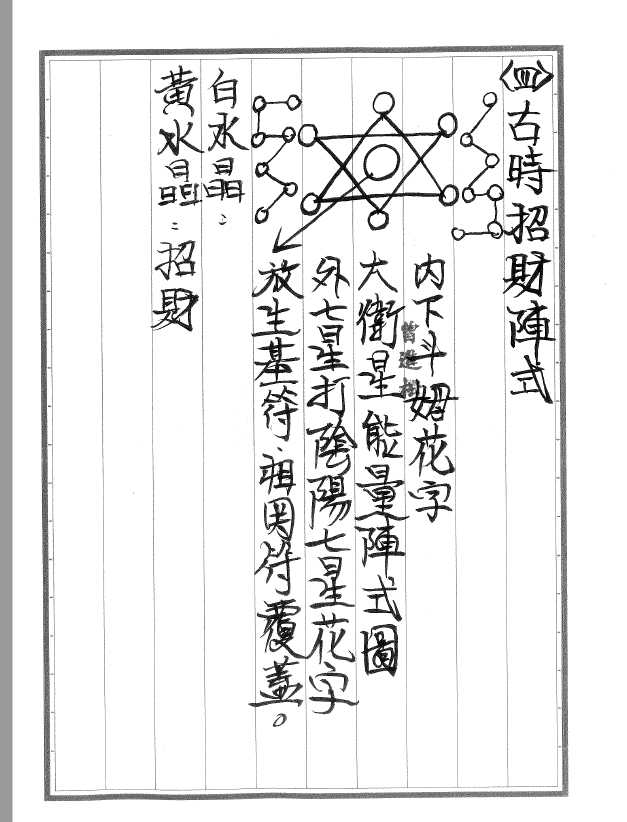 〈四〉古時招財陣式
內下斗姆花字
大衛星能量陣式圖
外七星打陰陽七星花字
放生基符、祖因符覆蓋。
白水晶：
黃水晶：招財